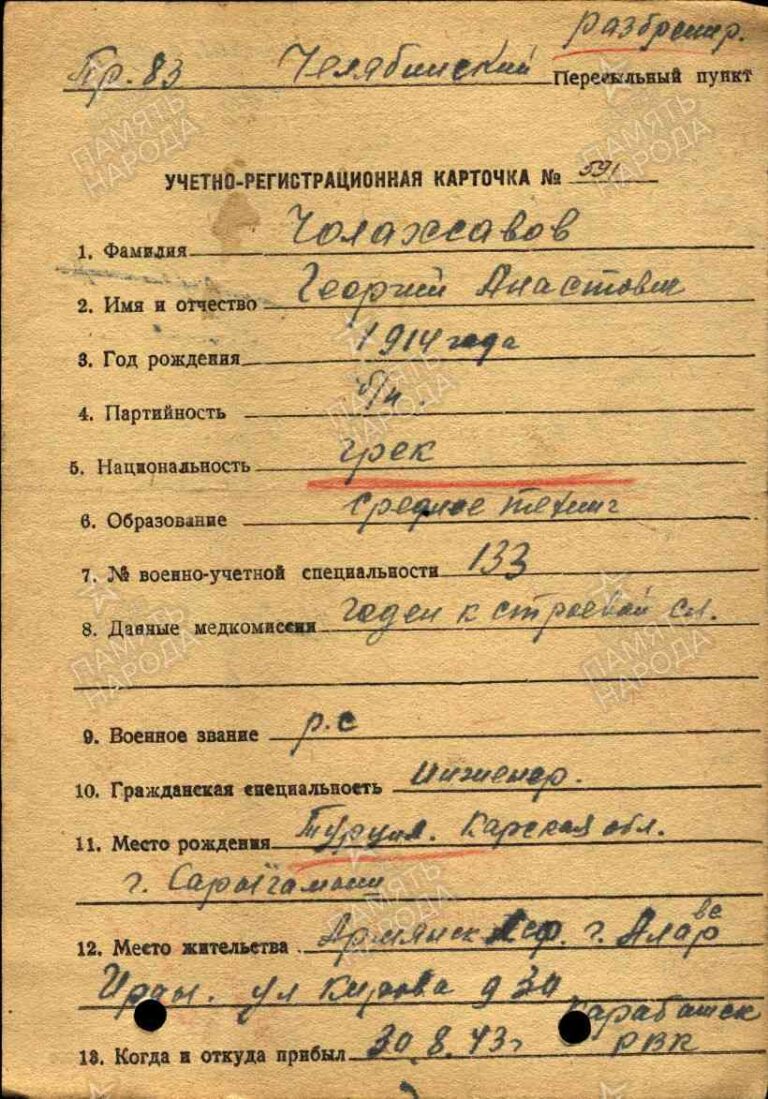 Разбронир.
Пр. 83 Челябинский Пересыльный пункт
УЧЕТНО-РЕГИСТРАЦИОННАЯ КАРТОЧКА № 591
1. Фамилия Чолахсавов
2. Имя и отчество Георгий Анастович
3. Год рождения 1914 года
4. Партийность б/п.
5. Национальность грек
6. Образование среднее
7. № военно-учетной специальности 133
8. Данные медкомиссии годен к строевой сл.
9. Военное звание р.с
10. Гражданская специальность Инженер.
11. Место рождения Турция. Карская обл.
г. Сарыгамыш
12. Место жительства Армянск г.
ул Кирова д 30
Карабашск
13. Когда и откуда прибыл 30.8.43г РВК
ПАМЯТЬ НАРОДА